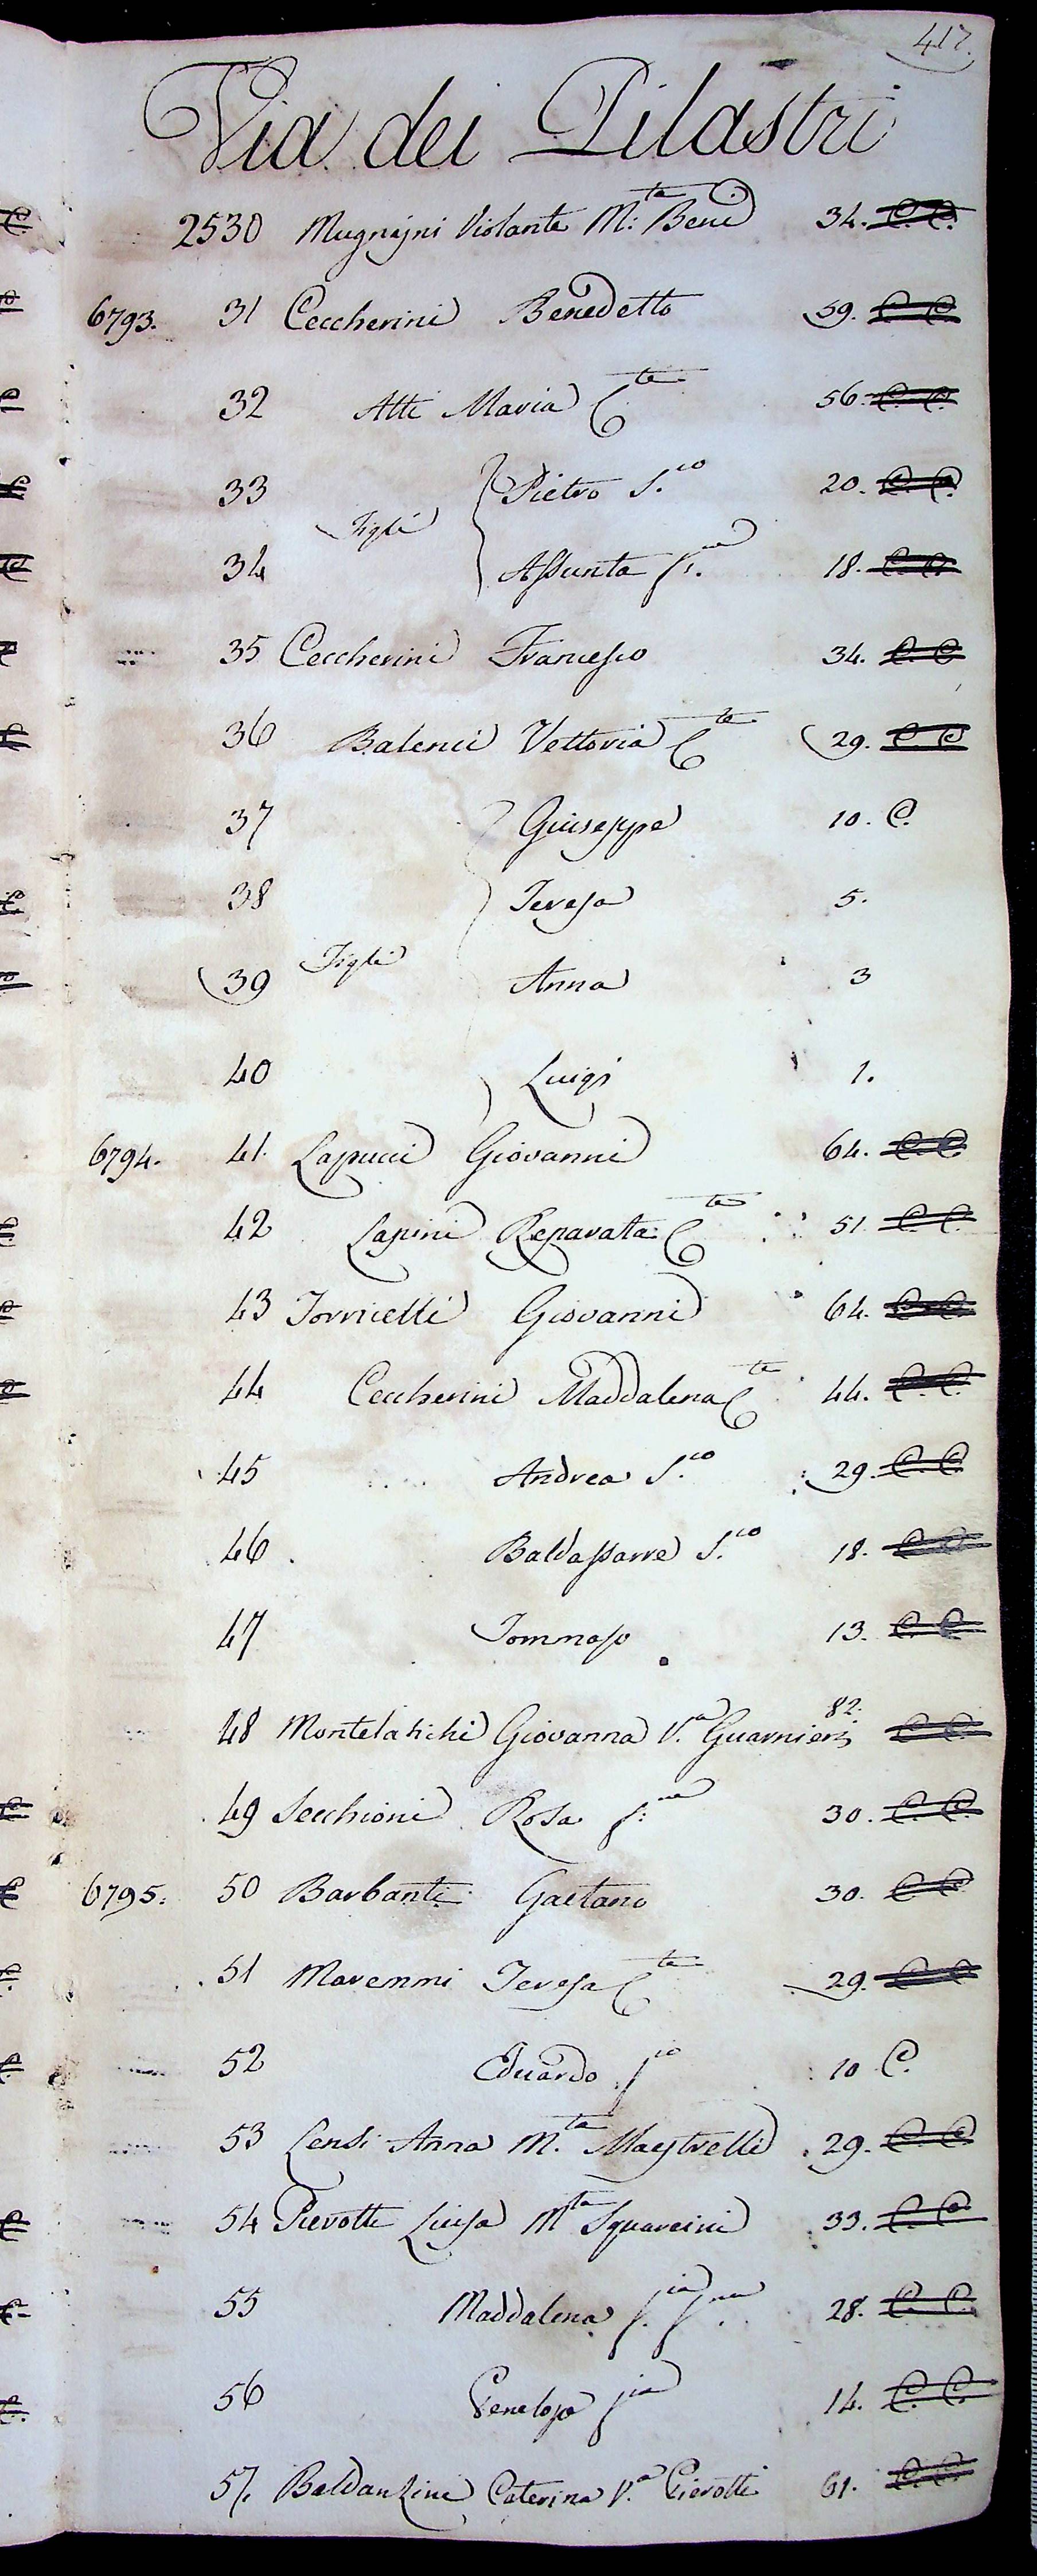 417.
Via dei Pilastri
2530 Mugnajni Violante M:ta Beni 34. C. C.
6793. 31 Ceccherini Benedetto 59. C C.
32 Atti Maria Cta 56. C. C.
33 Pietro S.co 20. C. C.
Figli
34 Assunta f.na 18. C. C.
35 Ceccherini Francesco 34. C. C
36 Balenci Vettoria Cta 29. C C
37 Giuseppe 10. C.
38 Teresa 5.
Figli
39 Anna 3
40 Luigi 1.
6794. 41. Lapucci Giovanni 64. C. C.
42 Lapini Reparata Cta 51 C C.
43 Torricelli Giovanni 64. C. C.
44 Ceccherini Maddalena Cta 44. C. C.
45 Andrea S.co 29. C. C
46. Baldassarre S.co 18. C. C.
47 Tommaso 13. C. C.
48 Montelatichi Giovanna V.a Guarnieri 82. C C.
49 Secchioni Rosa f:na 30. C. C.
6795. 50 Barbanti Gaetano 30. C C
51 Maremmi Teresa Cta 29. C C
52 Eduardo fio 10 C.
53 Censi Anna M.ta Maestrelli 29. C. C
54 Pierotti Luisa Mta Squarcini 33. C. C.
55 Maddalena f.ia f.na 28. C. C.
56 Penelope fia 14. C. C.
57. Baldanzini Caterina V.a Pierotti 61. C. C.